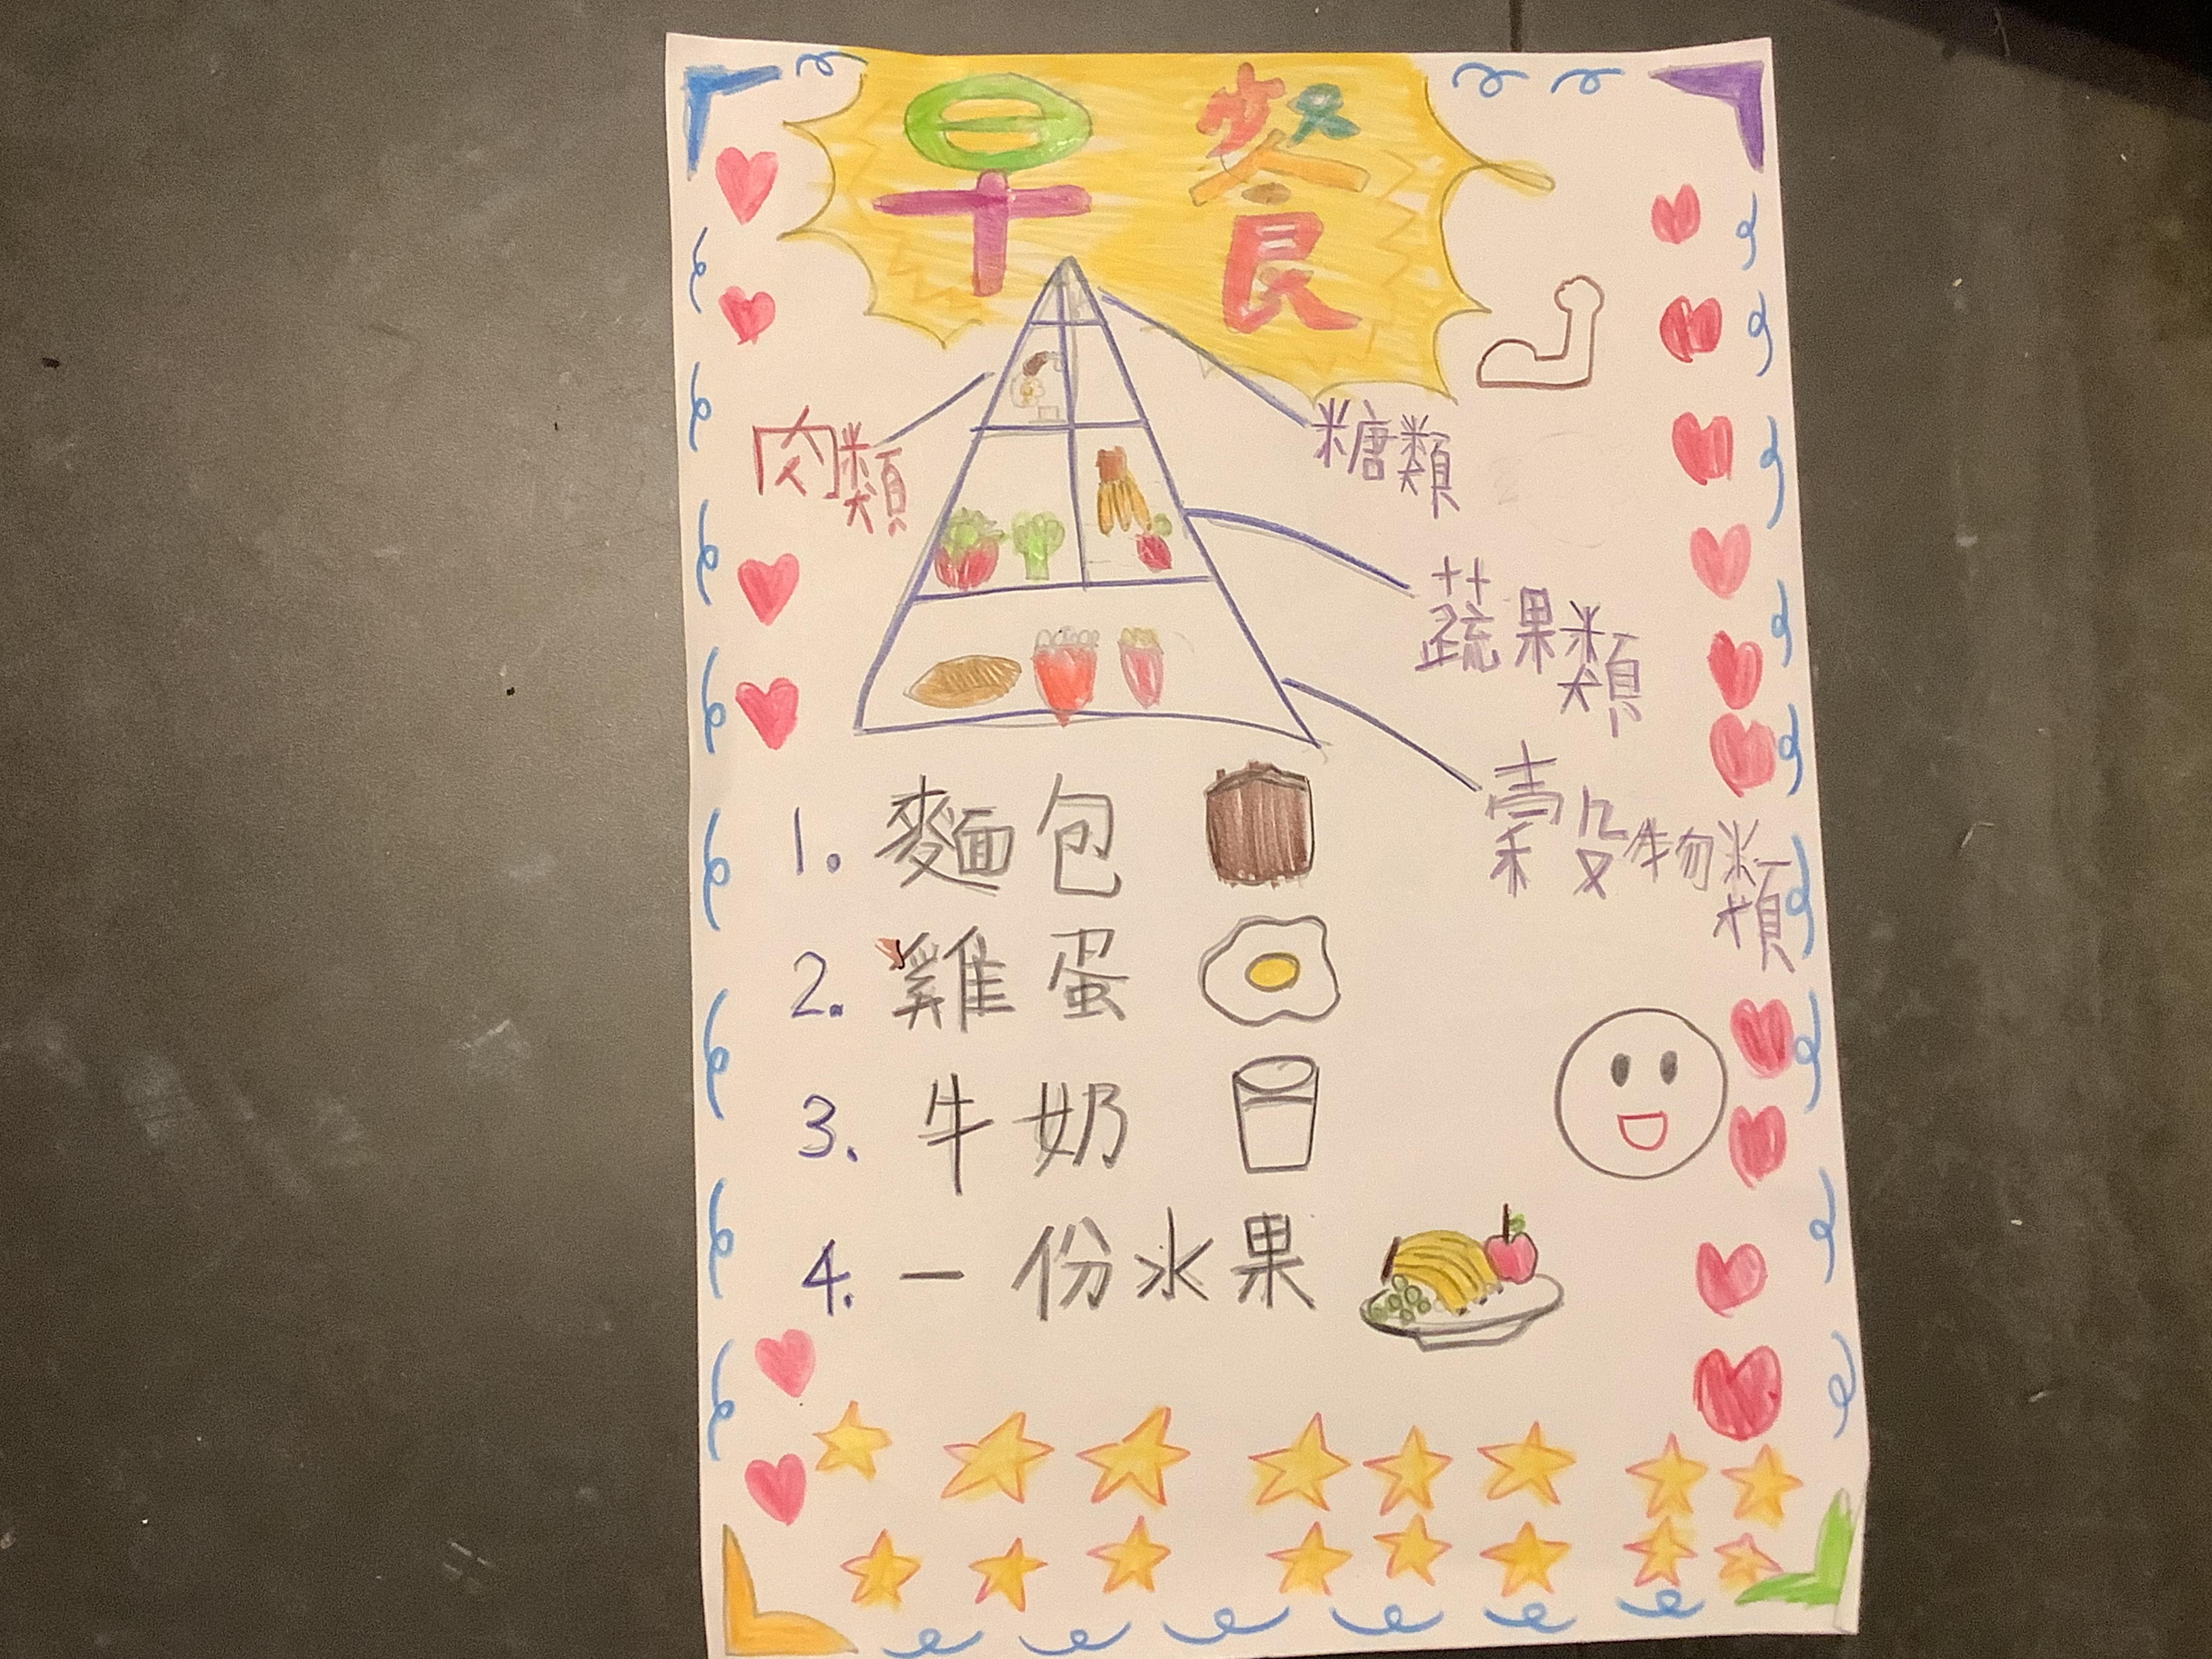 早餐
肉類
糖類
蔬果類
穀物類
1. 麵包
2. 雞蛋
3. 牛奶
4. 一份水果